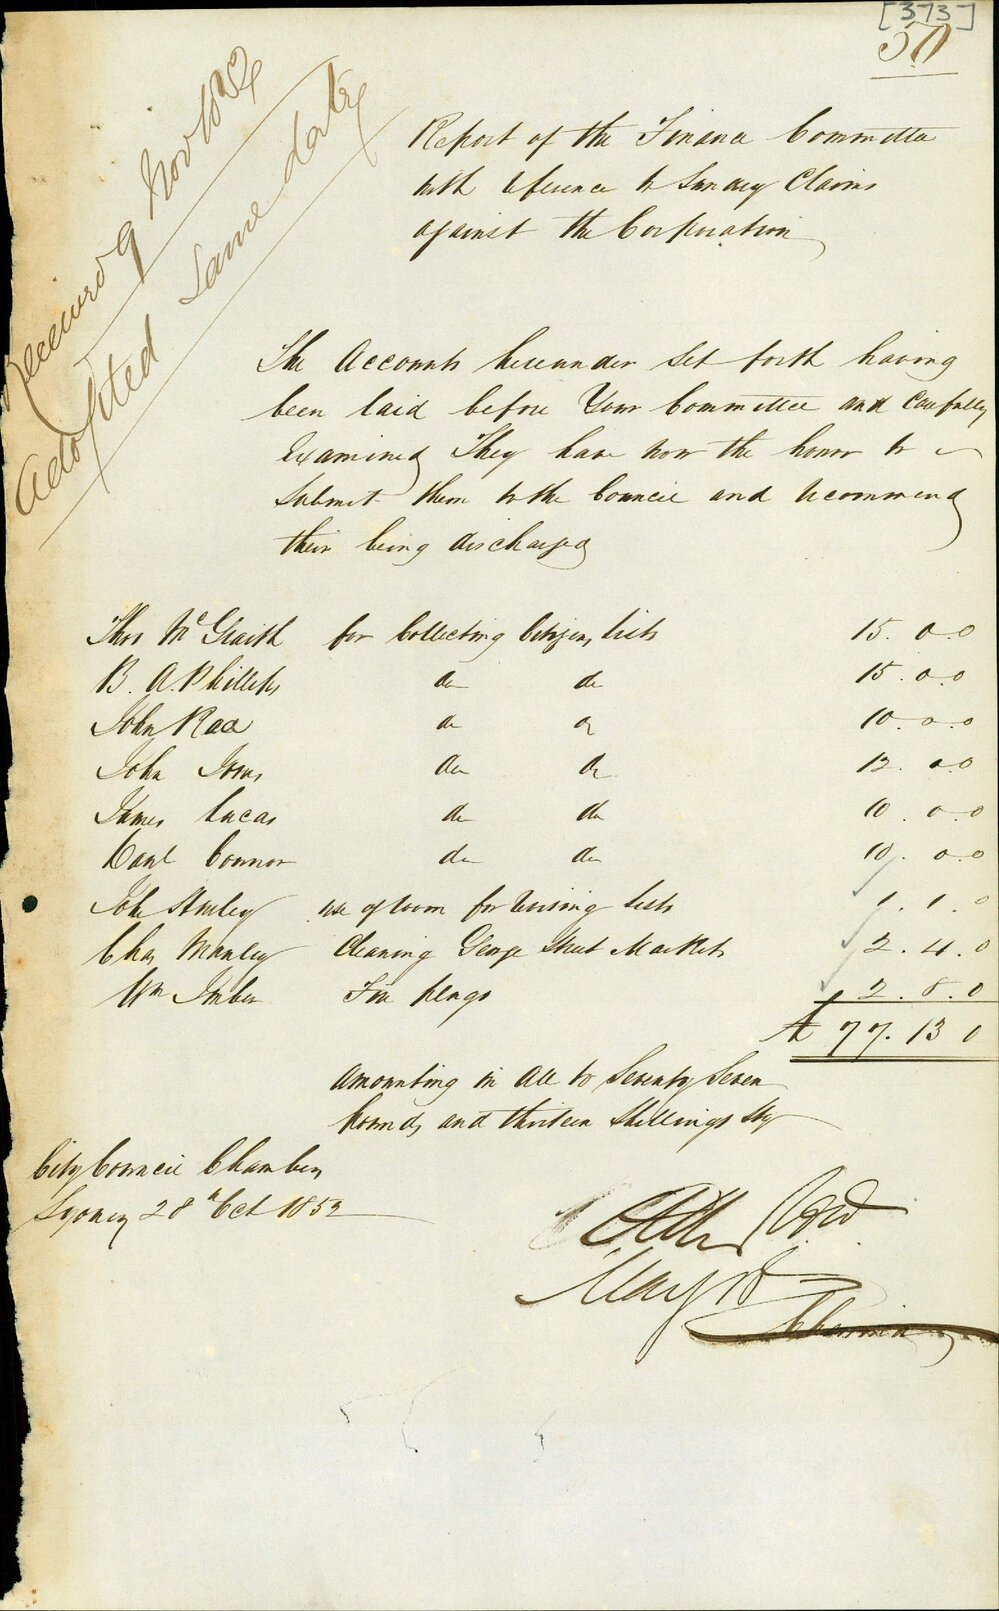 [373]
50
Received 9 Nov 1852
Adopted Same date
Report of the Finance Committee
with reference to Sundry Claims
against the Corporation
The Accounts hereunder set forth having
been laid before Your Committee and carefully
Examined They have now the honor to
Submit them to the Council and recommend
their being discharged
Thos McGraith for Collecting Citizens lists 15.0.0
B. A. Phillips do do 15.0.0
John Rae do do 10.0.0
John do do 12.0.0
James Lucas do do 10.0.0
Danl Connor do do 10.0.0
John use of room for revising lists 1.1.0
Chas Manley Cleaning George Street Markets 2.4.0
Wm Imber Fire plugs 2.8.0
£ 77.13 0
Amounting in all to Seventy Seven
Pounds and thirteen Shillings Stg
City Council Chamber
Sydney 28th Oct 1852
Mayor
Chairman